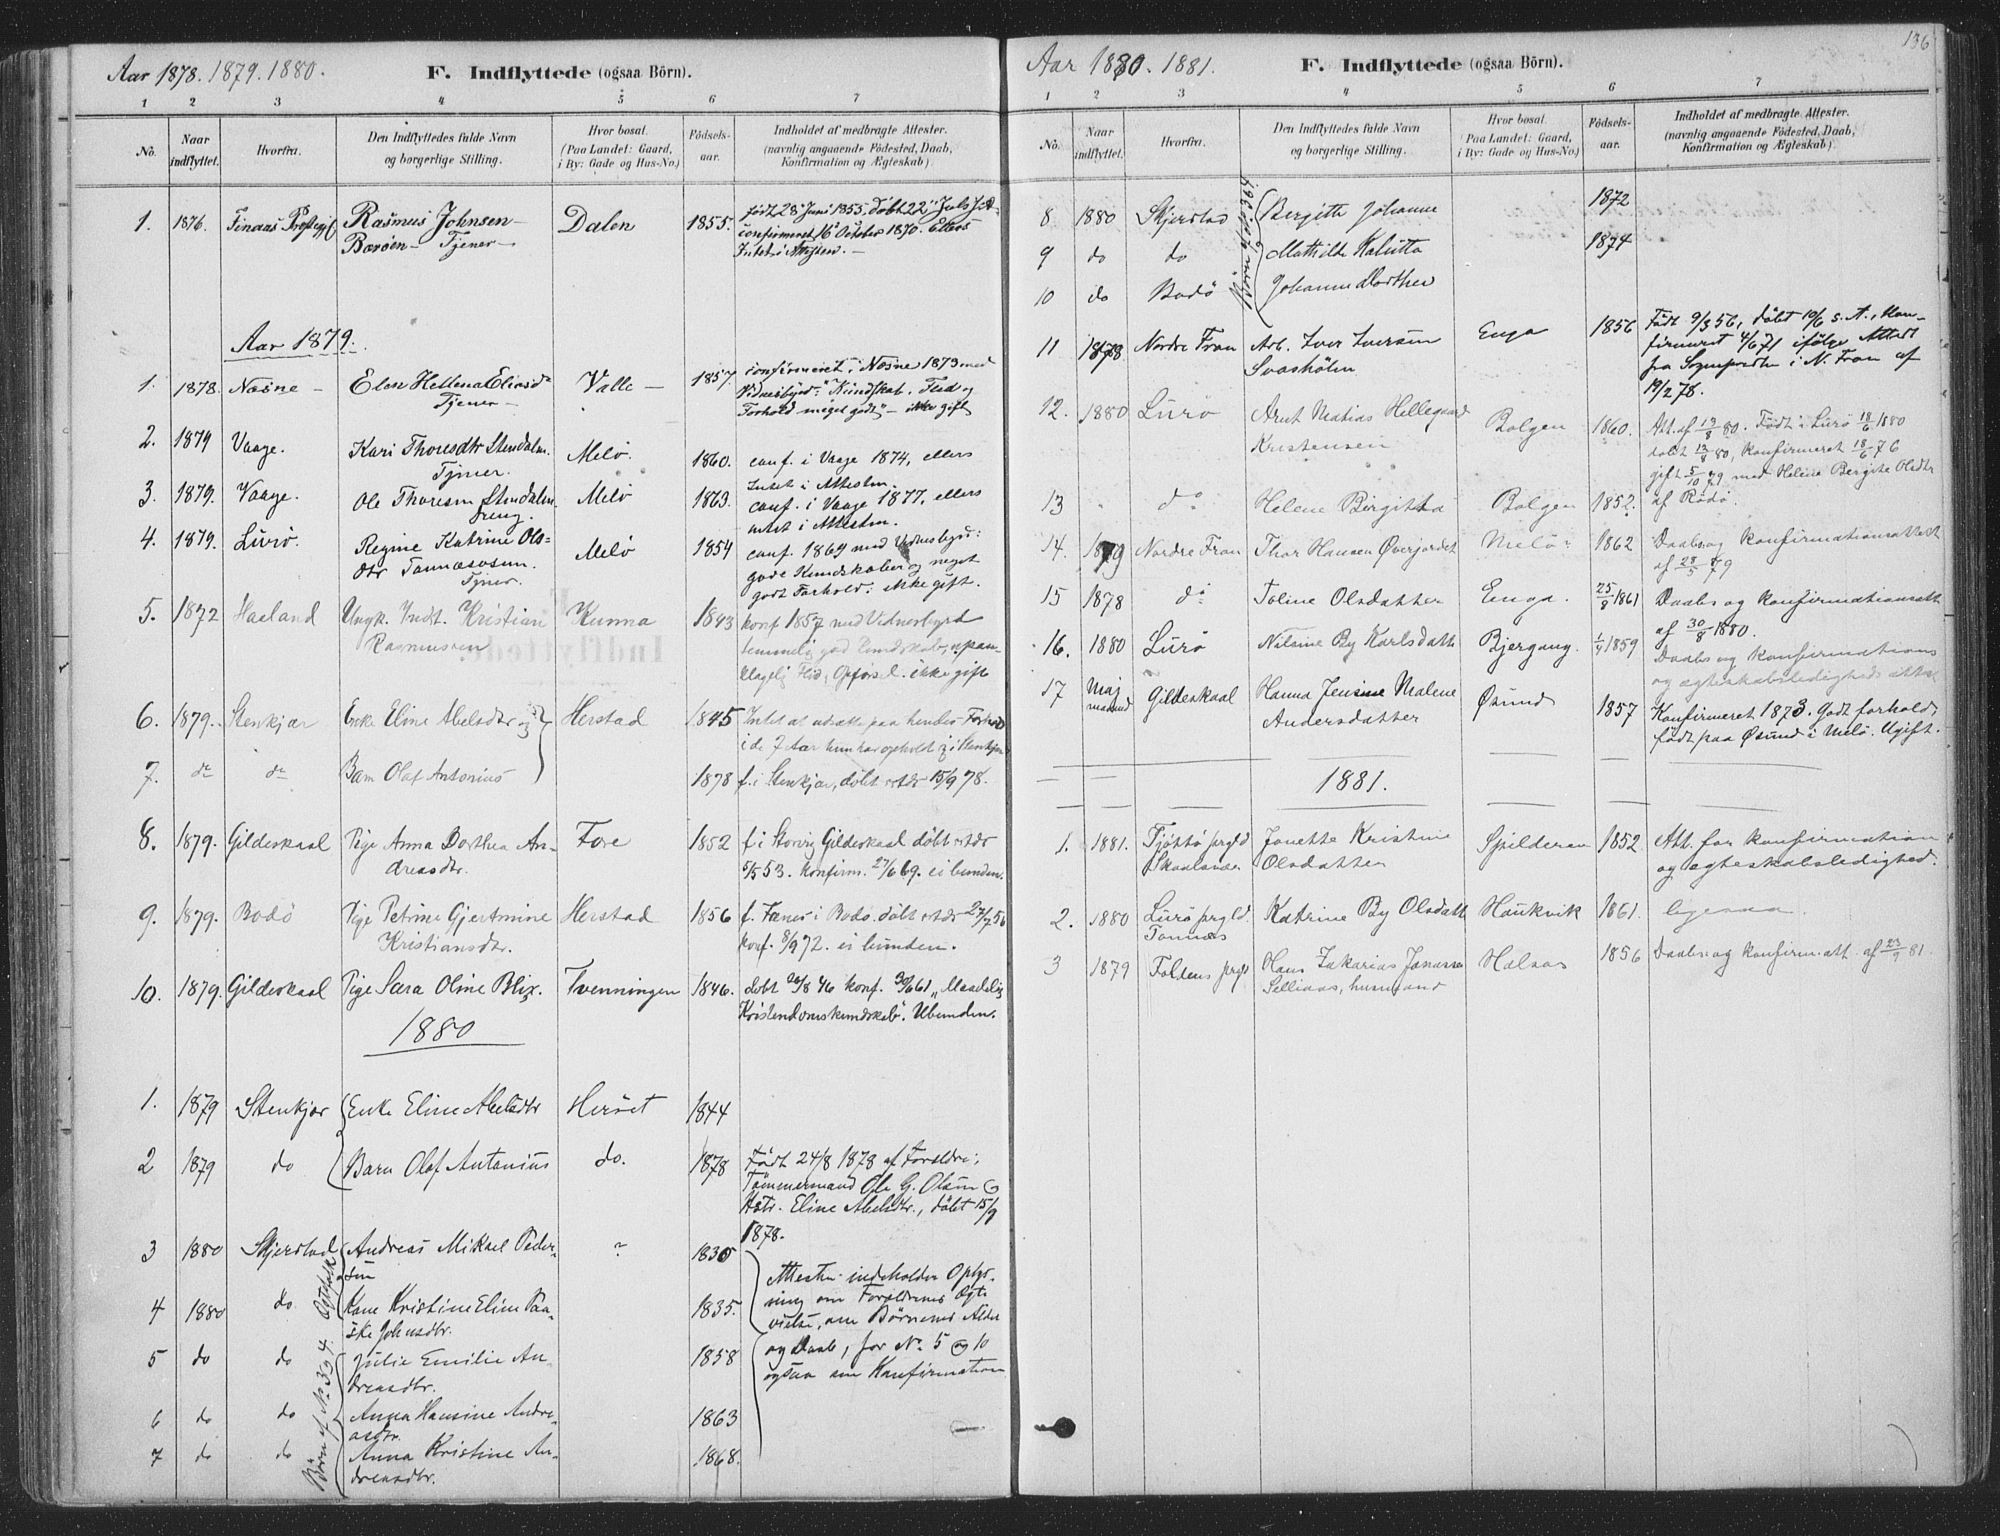 Aar 1878. 1879. 1880.
F. Indflyttede (ogsaa Börn).
1 2 3 4 5 6 7
No.
Naar indflyttet.
Hvorfra.
Den Indflyttedes fulde Navn og borgerlige Stilling.
Hvor bosat. (Paa Landet: Gaard, i By: Gade og Hus-No.)
Födsels-aar.
Indholdet af medbragte Attester. (navnlig angaaende Födested, Daab, Konfirmation og Ægteskab).
1. 1876. Rasmus Johnsen Dalen 1855. født 28 Juni 1855, døbt 22
Barøen – Tjener – confirmeret 16 October 1870. Ellers
Intet i Attesten. –
Aar 1879.
1. 1878. Næsne – Elen Hellena Eliasd. Valle – 1857. confirmeret i Næsne 1873 med
Tjener – Vidnesbyrd: "Kundskab, Flid og
Forhold meget godt" – ikke gift
2. 1879 Vaage. Kari Thoresdtr Stendalen. Melö. 1860. conf. i Vaage 1874, ellers
Tjener. Intet i Attesten.
3. 1879. Vaage. Ole Thoresen Stendalen Melö 1863. conf. i Vaage 1877, ellers
Dreng. intet i Attesten.
4. 1879. Lurö. Regine Katrine Ols- Melö 1854 conf. 1869 med Vidnesbyrd:
dtr Tonnesosen. gode Kundskaber og meget
Tjener. godt Forhold: ikke gift.
5. 1872 Haeland Ungk. Indt. Kristian Kunna 1843 konf 1857 med Vidnesbyrd
Rasmussen temmelig god Kundskab, upaa-
klagelig Flid, Opførsel. ikke gift
6. 1879. Stenkjær Enke Eline Abelsdtr og Herstad 1845 Intet at udsætte paa hendes Forhold
i de 7 Aar hun har opholdt sig i Stenkjær
7. do do Barn Olaf Antonius 1878 f. i Stenkjær, døbt 15/9 78.
8. 1879. Gildeskaal Pige Anna Dorthea An- Fore 1852 f. i Storvig Gildeskaal døbt
dreasdtr. 5/5 53. konfirm. 27/6 69. ei bunden.
9. 1879. Bodö Pige Petrine Gjertmine Herstad 1856 f. Fanes i Bodö. døbt 27/7 56
Kristiansdtr. konf. 8/9 72. ei bunden.
10. 1879. Gildeskaal Pige Sara Oline Blix. Tvenningen 1846. døbt 26/8 46 konf. 30/6 61 "Maadelig
Kristendomskundskab". Ubunden.
1880
1. 1879 Stenkjær Enke Eline Abelsdtr Herset 1844
2 1879 do Barn Olaf Antonius do. 1878 Født 24/8 1878 af Forældre:
Tømmermand Ole G. Olsen og
Hstr. Eline Abelsdtr., døbt 15/9
1878.
3 1880 Skjerstad Andreas Mikael Peder- 1830 Attesten indeholder Oplys-
sen
Ægtefolk
4 1880 do Kone Kristine Eline Paa- 1835. ning om Forældrenes Ægte
ske Johnsdtr. vielse, om Børnenes Alder
5 do do Julie Emilie An- 1858 og Daab, for No 5 og 10
dreasdtr. ogsaa om Konfirmation
6 do do Anna Hansine Andre- 1863
asdtr.
7 do do Anna Kristine An- 1868.
dreasdtr.
Børn af No 3 og 4.
136
Aar 1880. 1881.
F. Indflyttede (ogsaa Börn).
1 2 3 4 5 6 7
No.
Naar indflyttet.
Hvorfra.
Den Indflyttedes fulde Navn og borgerlige Stilling.
Hvor bosat. (Paa Landet: Gaard, i By: Gade og Hus-No.)
Födsels-aar.
Indholdet af medbragte Attester. (navnlig angaaende Födested, Daab, Konfirmation og Ægteskab).
8 1880 Skjerstad Bergitte Johanne 1872
9 do do Mathilde Kalutta 1874
10 do Bodö Johanne Dorthea
Børn af No 3 og 4
11 1878 Nordre Fron Arb. Iver Iversen Enga 1856 Født 9/3 56, døbt 10/6 s. A., Kon-
Svashølen firmeret 4/6 71 ifølge Attest
fra Sognepresten i N. Fron af
19/2 78.
12. 1880 Lurö Arnt Matias Hellegaard Bolgen 1860. Att. af 19/8 80. Født i Lurö 18/6 1880
Kristensen døbt 13/8 80, konfirmeret 18/6 76
gift 5/10 79 med Helene Bergite Olsdtr
13 " do Helene Birgitta Bolgen 1852. af Rødö.
14. 1879 Nordre Fron Thor Hansen Øverjordet Melö 1862 Daabs og konfirmationsattest
af 28/5 79
15 1878 do Toline Olsdatter Enga. 25/8 1861 Daabs og konfirmationsatt
af 30/8 1880.
16. 1880 Lurö Nilsine By Karlsdatt Bjergang. 1/4 1859 Daabs og konfirmations
og ægteskabsledigheds attest.
17 Maj Gildeskaal Hanna Jensine Malene Øsund 1857 Konfirmeret 1873. Godt forhold,
maaned Andersdatter født paa Øsund i Melö. Ugift.
1881.
1. 1881. Tjøttö prgld Jonette Kristine Spilderen 1852. Att. for konfirmation
Olsdatter og ægteskabsledighed.
2. 1880 Lurö prgld. Katrine By Olsdatt Haukvik 1861. ligesaa.
Tonnes
3 1879 Foldens prgld Hans Zakarias Jonassen Halsos 1856 Daabs og konfirm. att. af 23/9 81.
Selliaas, husmand